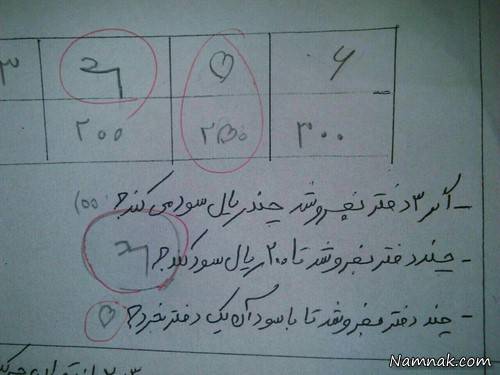 ۳ ۴ ۵ ۶
۲۰۰ ۲۵۰ ۳۰۰
- اگر ۳ دفتر بفروشد چند ریال سود می کند؟ ۱۰۰
- چند دفتر بفروشد تا ۲۰۰ ریال سود کند؟ ۴
- چند دفتر بفروشد تا با سود آن یک دفتر بخرد؟ ۵
Namnak.com